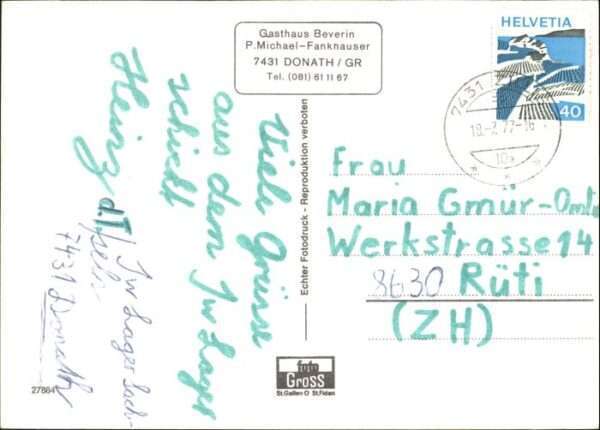 Gasthaus Beverin
P. Michael-Fanknauser
7431 DONATH / GR
Tel. (081) 61 11 67
HELVETIA
40
7431
18.-2.77-16
10a
Viele Grüsse
aus dem Jw Lager
schickt
Heinz d.T.
Jw Lager
7431 Donath
Echter Fotodruck - Reproduktion verboten
Frau
Maria Gmür-Omlin
Werkstrasse 14
8630 Rüti
(ZH)
Gross
St.Gallen O St.Fiden
27884